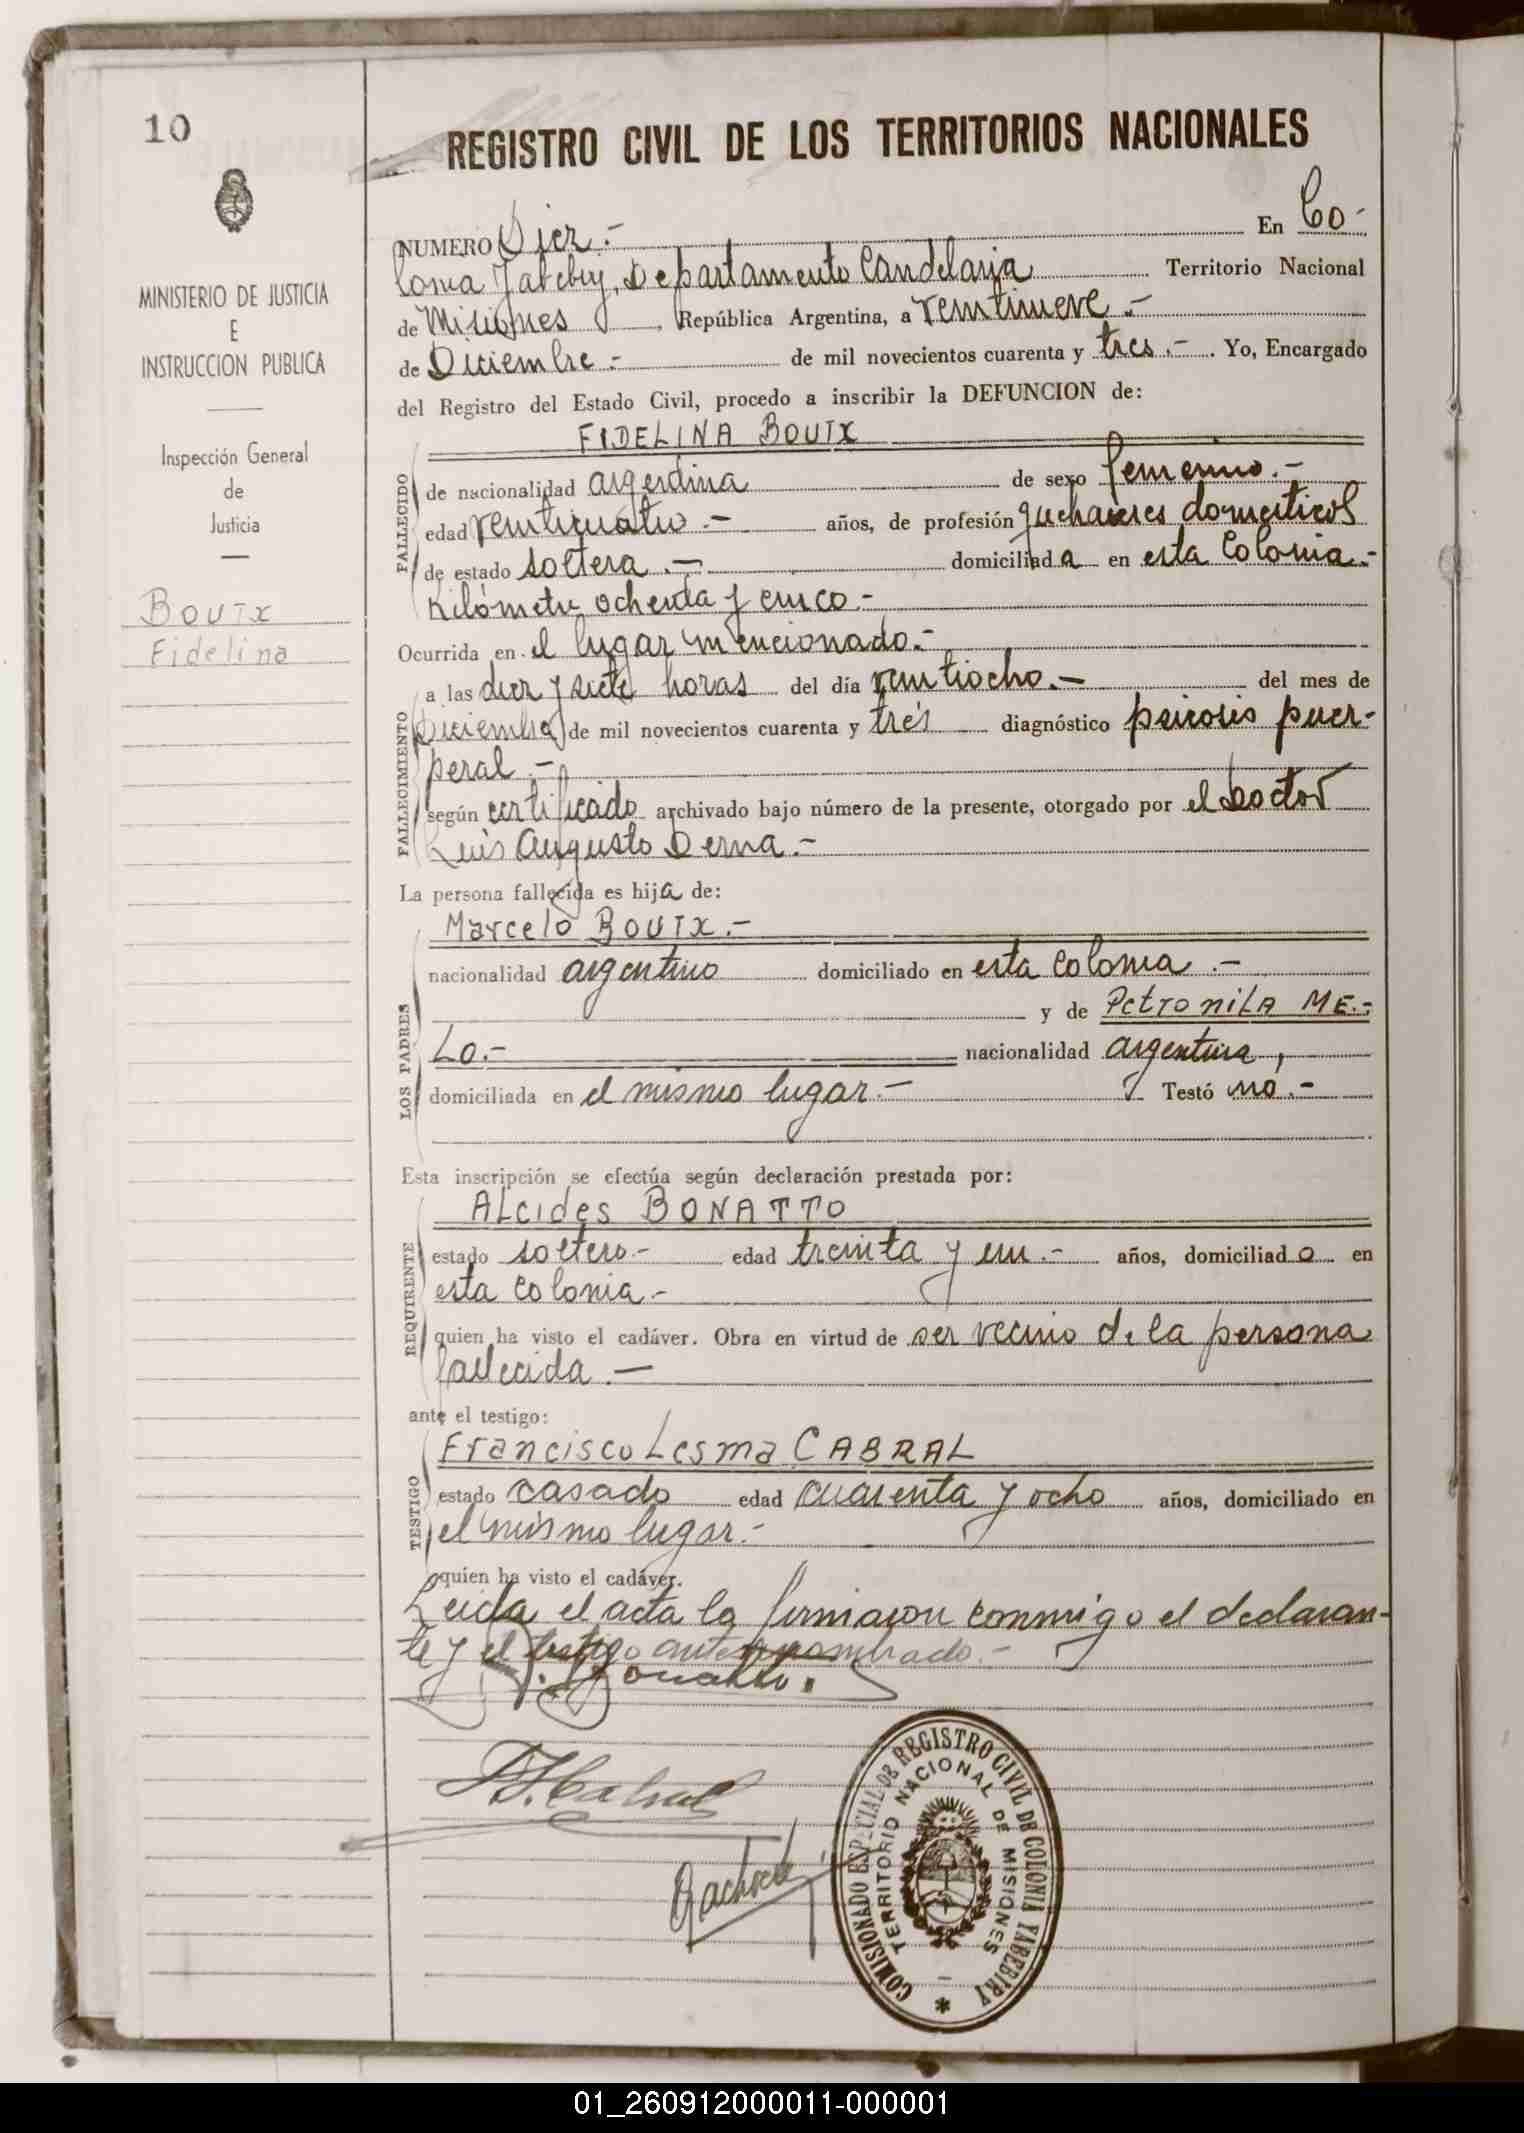 10
REGISTRO CIVIL DE LOS TERRITORIOS NACIONALES
MINISTERIO DE JUSTICIA
E
INSTRUCCION PUBLICA
Inspección General
de
Justicia
BOUIX
Fidelina
NUMERO Diez.- En Co-
lonia Yabebiry, Departamento Candelaria Territorio Nacional
de Misiones, República Argentina, a veintinueve.-
de Diciembre.- de mil novecientos cuarenta y tres.-. Yo, Encargado
del Registro del Estado Civil, procedo a inscribir la DEFUNCION de:
FIDELINA BOUIX
FALLECIDO
de nacionalidad argentina de sexo femenino.-
edad veinticuatro.- años, de profesión quehaceres domesticos
de estado soltera.- domiciliada en esta Colonia.-
Kilómetro ochenta y cinco-
Ocurrida en el lugar mencionado.-
FALLECIMIENTO
a las diez y siete horas del día veintiocho.- del mes de
Diciembre de mil novecientos cuarenta y trés diagnóstico psicosis puer-
peral.-
según certificado archivado bajo número de la presente, otorgado por el Doctor
Luis Augusto Derna.-
La persona fallecida es hija de:
LOS PADRES
Marcelo BOUIX.-
nacionalidad argentino domiciliado en esta Colonia.-
y de Petronila ME-
LO.- nacionalidad argentina,
domiciliada en el mismo lugar.- Testó no.-
Esta inscripción se efectúa según declaración prestada por:
REQUIRENTE
ALcides BONATTO
estado soltero.- edad treinta y un.- años, domiciliado en
esta Colonia.-
quien ha visto el cadáver. Obra en virtud de ser vecino de la persona
fallecida.-
ante el testigo:
TESTIGO
Francisco Lesma CABRAL
estado casado edad cuarenta y ocho años, domiciliado en
el mismo lugar.-
quien ha visto el cadáver.
Leida el acta la firmaron conmigo el declaran-
te y el testigo antes nombrado.-
A. Bonatto.
F. L. Cabral
COMISIONADO ESPECIAL DE REGISTRO CIVIL DE COLONIA YABEBIRY
TERRITORIO NACIONAL DE MISIONES
01_260912000011-000001